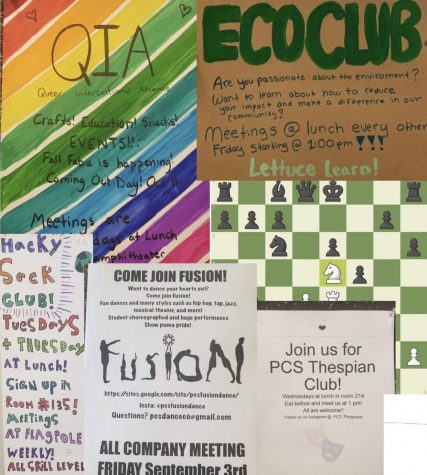 QIA
Queer Intersectional Alliance
Crafts! Education! Snacks!
EVENTS!!!
Fall Fabu is happening!
Coming Out Day! Oct 11
Meetings are
days at Lunch
amphitheater
ECOCLUB
Are you passionate about the enviroment?
Want to learn about how to reduce
your impact and make a difference in our
community?
Meetings @ lunch every other
Friday starting @ 1:00pm
Lettuce learn!
Hacky
Sack
CLUB!
TUESDAYS
+ THURSDAY
AT LUNCH!
SIGN UP IN
ROOM #135!
MEETINGS
AT FLAGPOLE
WEEKLY!
ALL SKILL LEVEL
COME JOIN FUSION!
Want to dance your hearts out?
Come join fusion!
Fun dances and many styles such as hip hop, tap, jazz,
musical theater, and more!
Student choreographed and huge performance
Show puma pride!
FUSION
https://sites.google.com/site/pcsfusiondance/
Insta: @pcsfusiondance
Questions? pcsdanceco@gmail.com
ALL COMPANY MEETING
FRIDAY September 3rd
Join us for
PCS Thespian
Club!
Wednesdays at lunch in room 214
Eat before and meet us at 1 pm!
All are welcome!!
Follow us on Instagram @